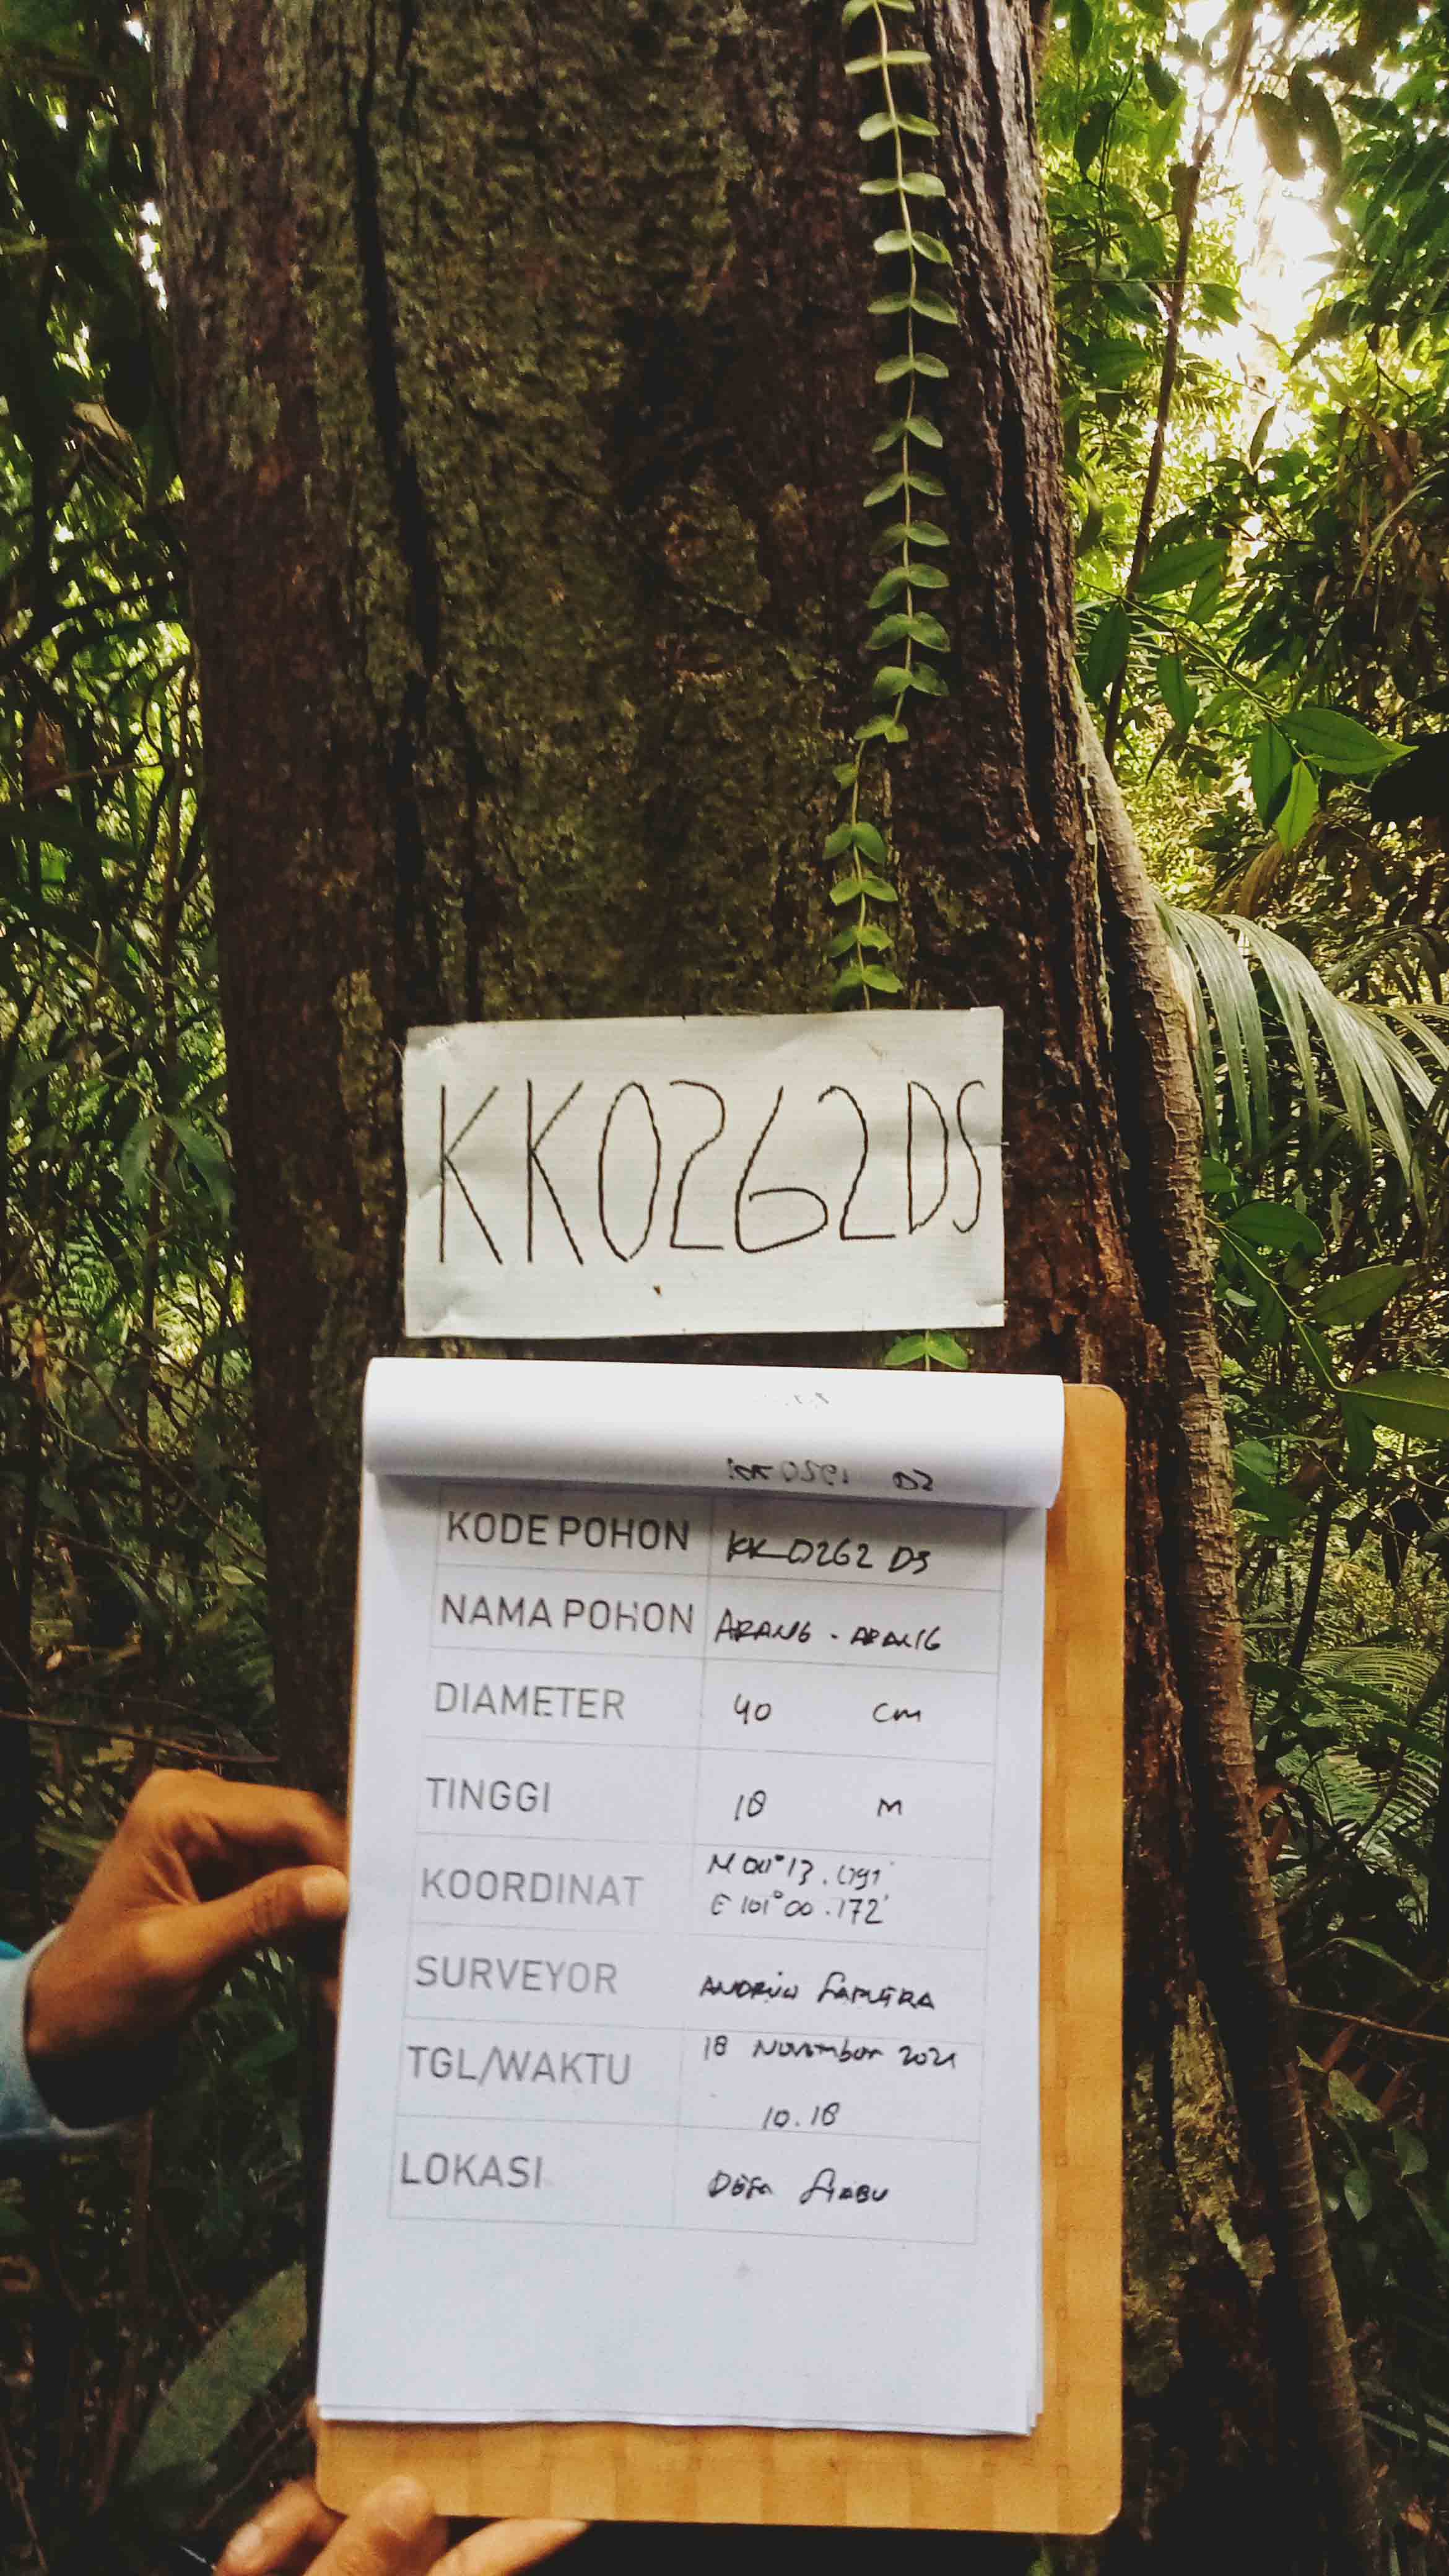 KK0262DS
KODE POHON KK0262 DS
NAMA POHON ARANG - ARANG
DIAMETER 40 cm
TINGGI 18 M
KOORDINAT N 00° 13.
E 101° 00.172'
SURVEYOR SAPUTRA
TGL/WAKTU 18 November 2021
10.18
LOKASI DESA SIABU